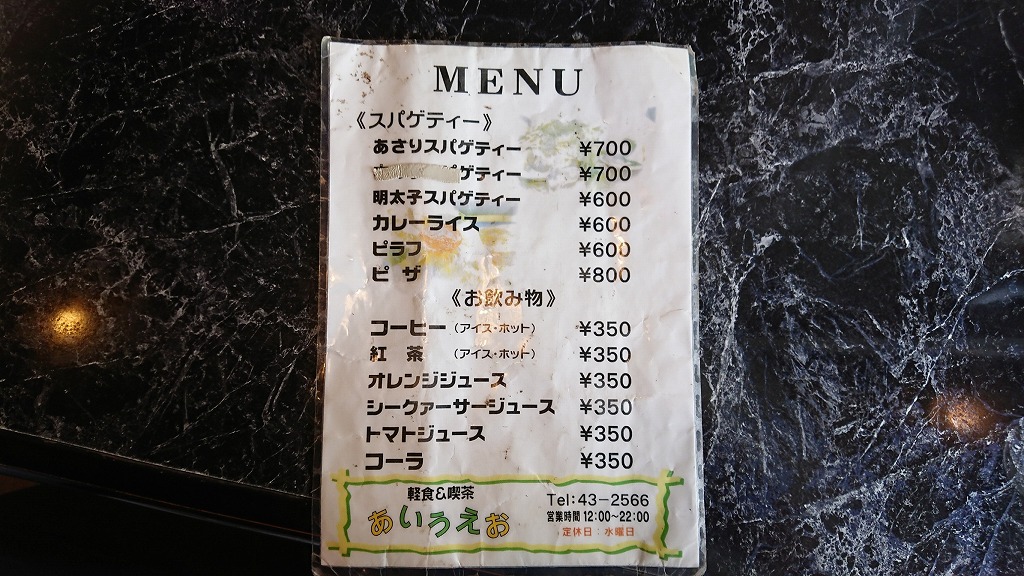 MENU
《スパゲティー》
あさりスパゲティー ¥700
パゲティー ¥700
明太子スパゲティー ¥600
カレーライス ¥600
ピラフ ¥600
ピザ ¥800
《お飲み物》
コーヒー (アイス・ホット) ¥350
紅茶 (アイス・ホット) ¥350
オレンジジュース ¥350
シークァーサージュース ¥350
トマトジュース ¥350
コーラ ¥350
軽食&喫茶
あいうえお
Tel:43-2566
営業時間 12:00~22:00
定休日:水曜日